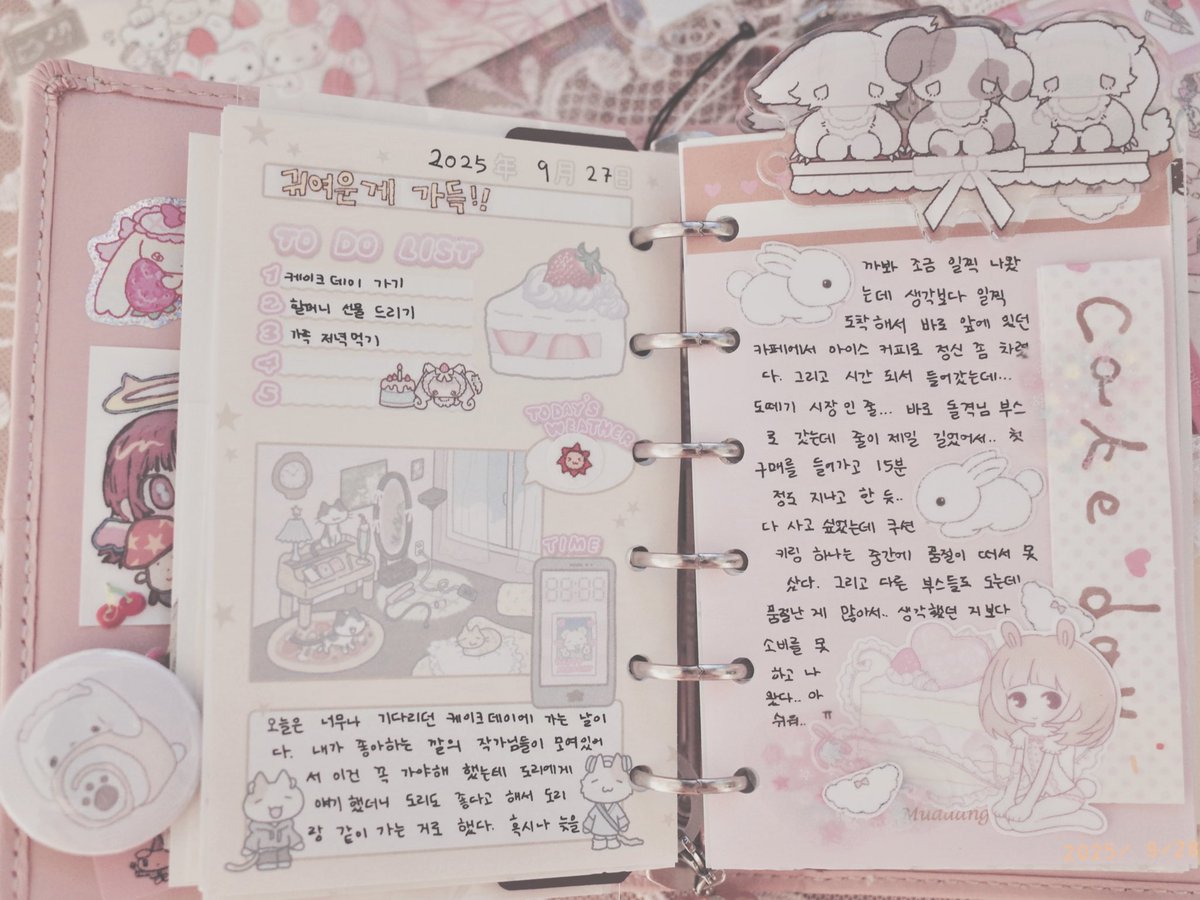 2025年 9月 27日
귀여운게 가득!!
TO DO LIST
1 케이크데이 가기
2 할머니 선물 드리기
3 가족 저녁먹기
4
5
TODAY'S
WEATHER
TIME
오늘은 너무나 기다리던 케이크데이에 가는 날이
다. 내가 좋아하는 깔의 작가님들이 모여있어
서 이건 꼭 가야해 했는데 도리에게
얘기했더니 도리도 좋다고 해서 도리
랑 같이 가는 거로 했다. 혹시나 늦을
까봐 조금 일찍 나왔
는데 생각보다 일찍
도착해서 바로 앞에 있던
카페에서 아이스 커피로 정신 좀 차렸
다. 그리고 시간 되서 들어갔는데...
도떼기 시장인 줄... 바로 돌격님 부스
로 갔는데 줄이 제일 길었어서.. 첫
구매를 들어가고 15분
정도 지나고 한 듯..
다 사고 싶었는데 쿠션
키링 하나는 중간에 품절이 떠서 못
샀다. 그리고 다른 부스들도 도는데
품절난 게 많아서.. 생각했던 지보다
소비를 못
하고 나
왔다.. 아
쉬워.. ㅠ
Cake day
Muauung
2025/ 9/28